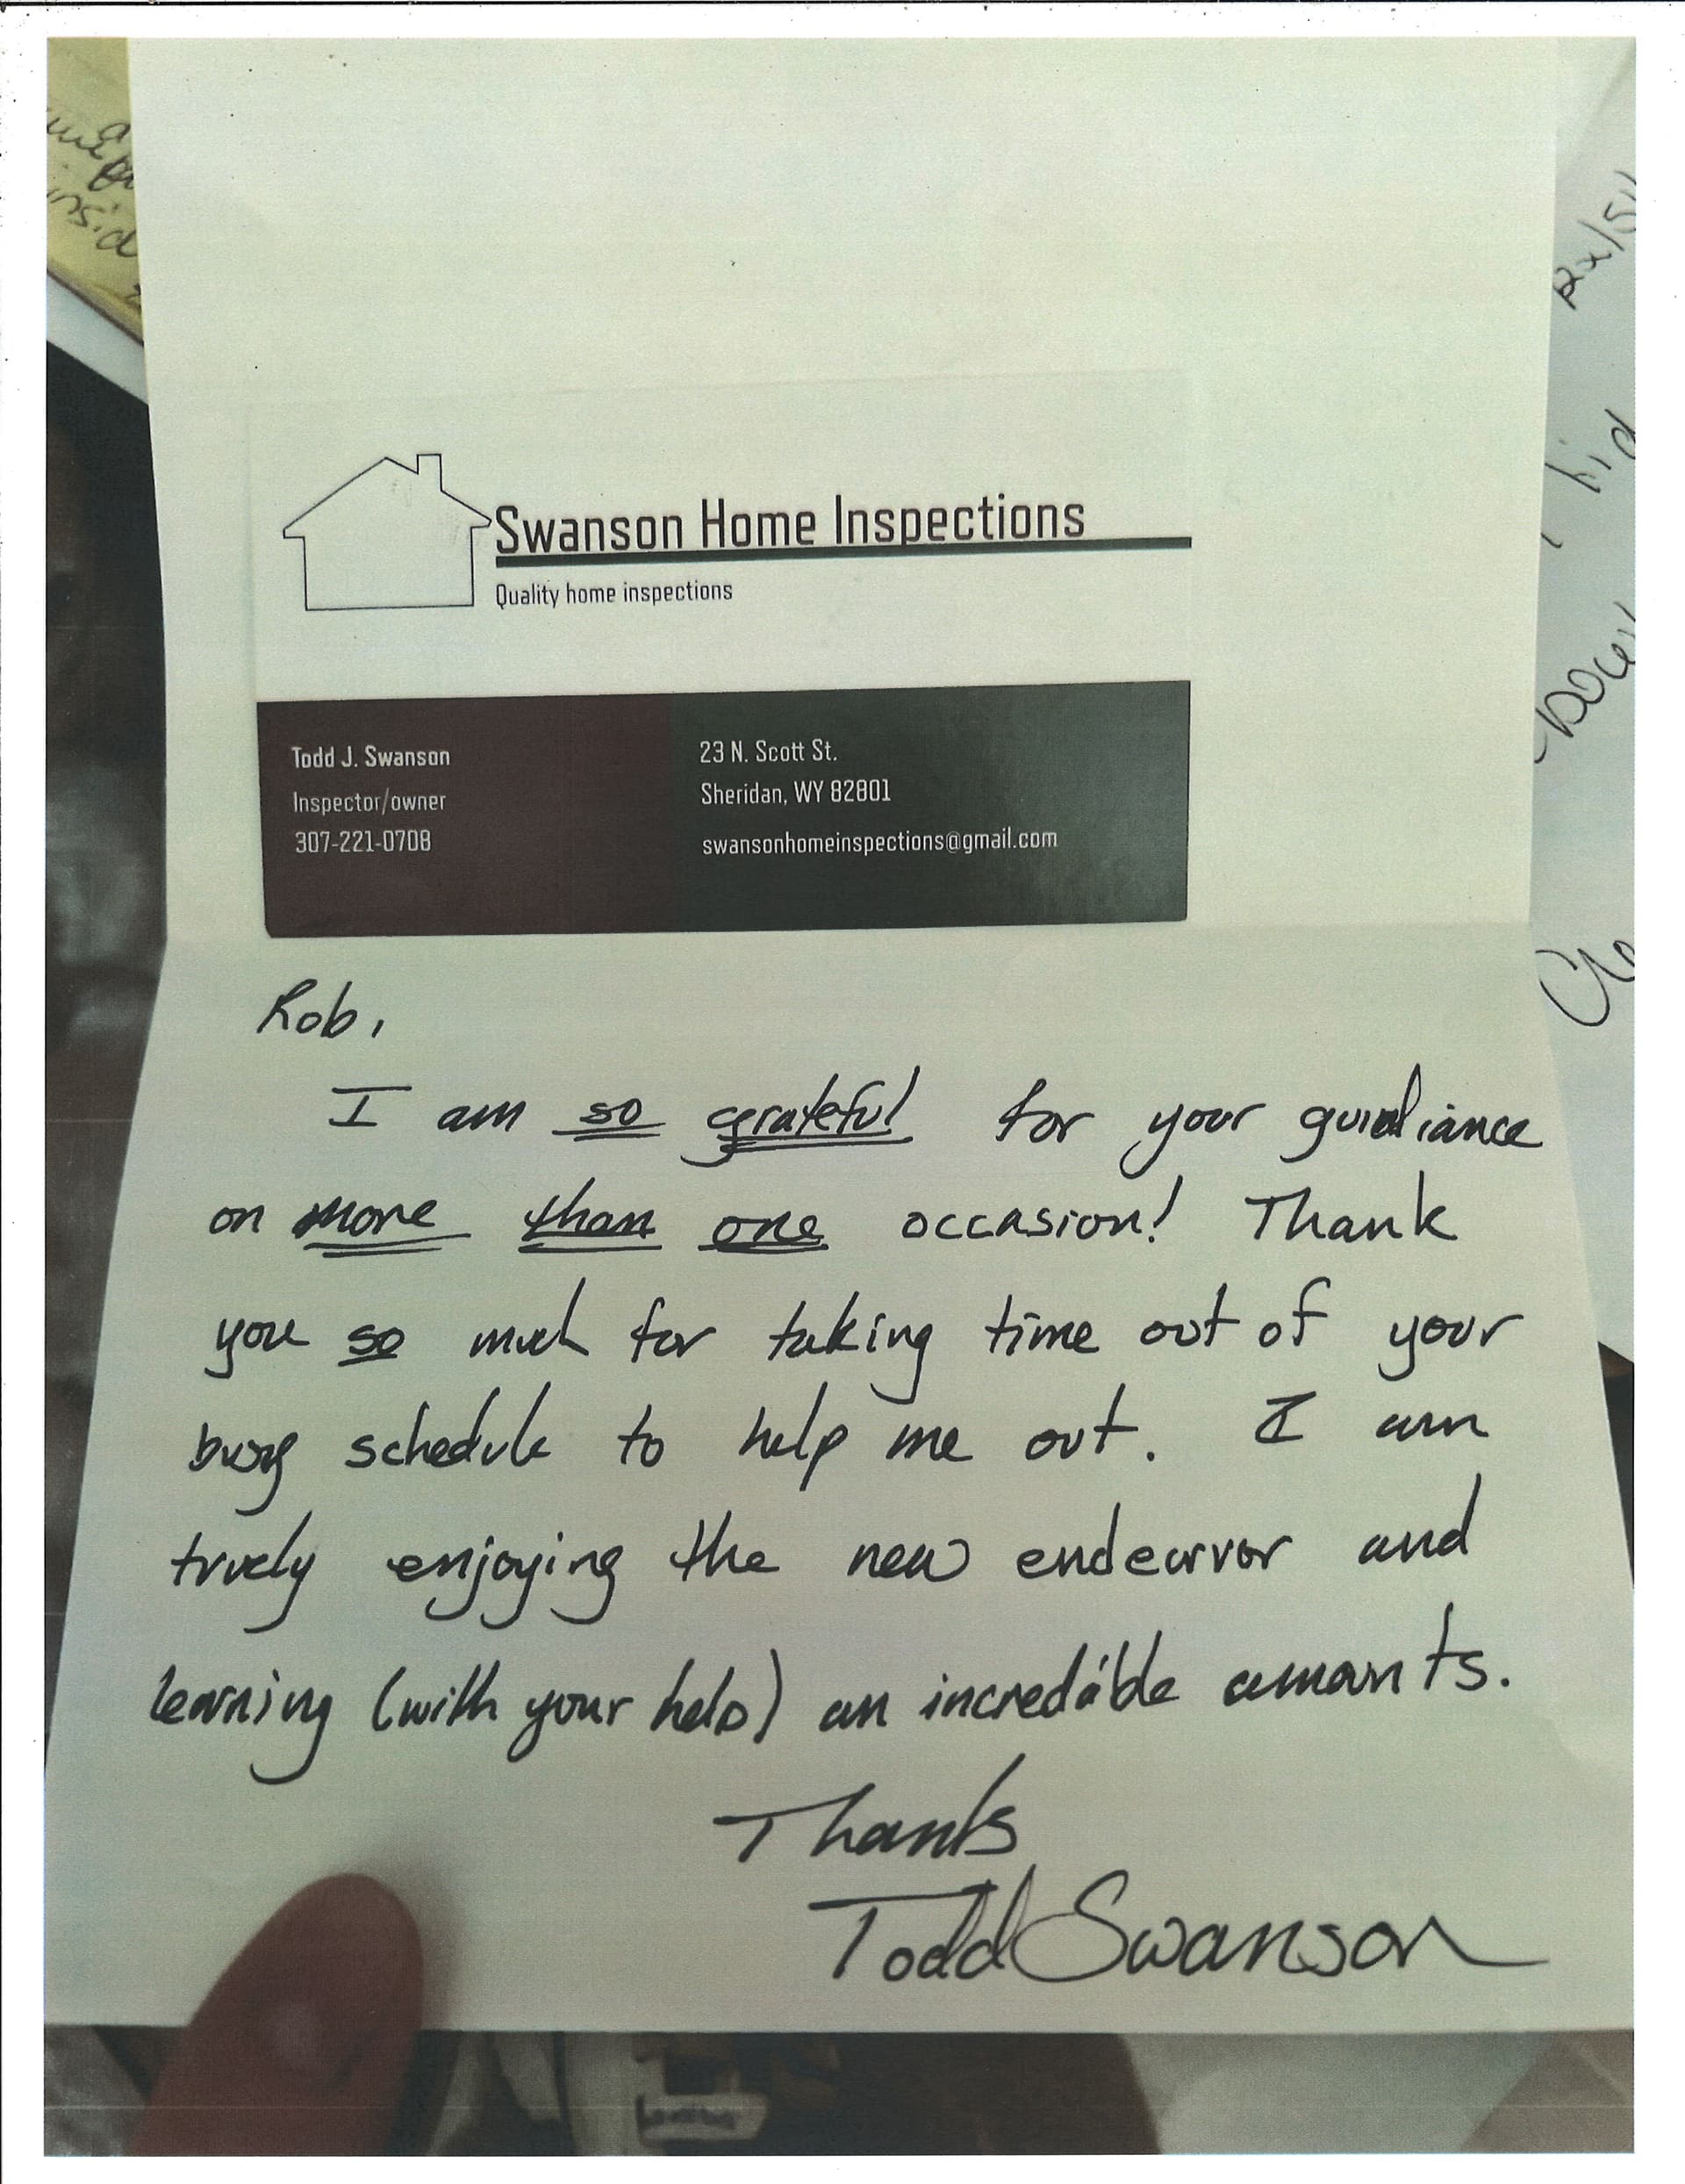 Swanson Home Inspections
Quality home inspections
Todd J. Swanson
Inspector/owner
307-221-0708
23 N. Scott St.
Sheridan, WY 82801
swansonhomeinspections@gmail.com
Rob,
I am so grateful for your guidiance
on more than one occasion! Thank
you so much for taking time out of your
busy schedule to help me out. I am
truely enjoying the new endeavor and
learning (with your help) an incredible amounts.
Thanks
Todd Swanson